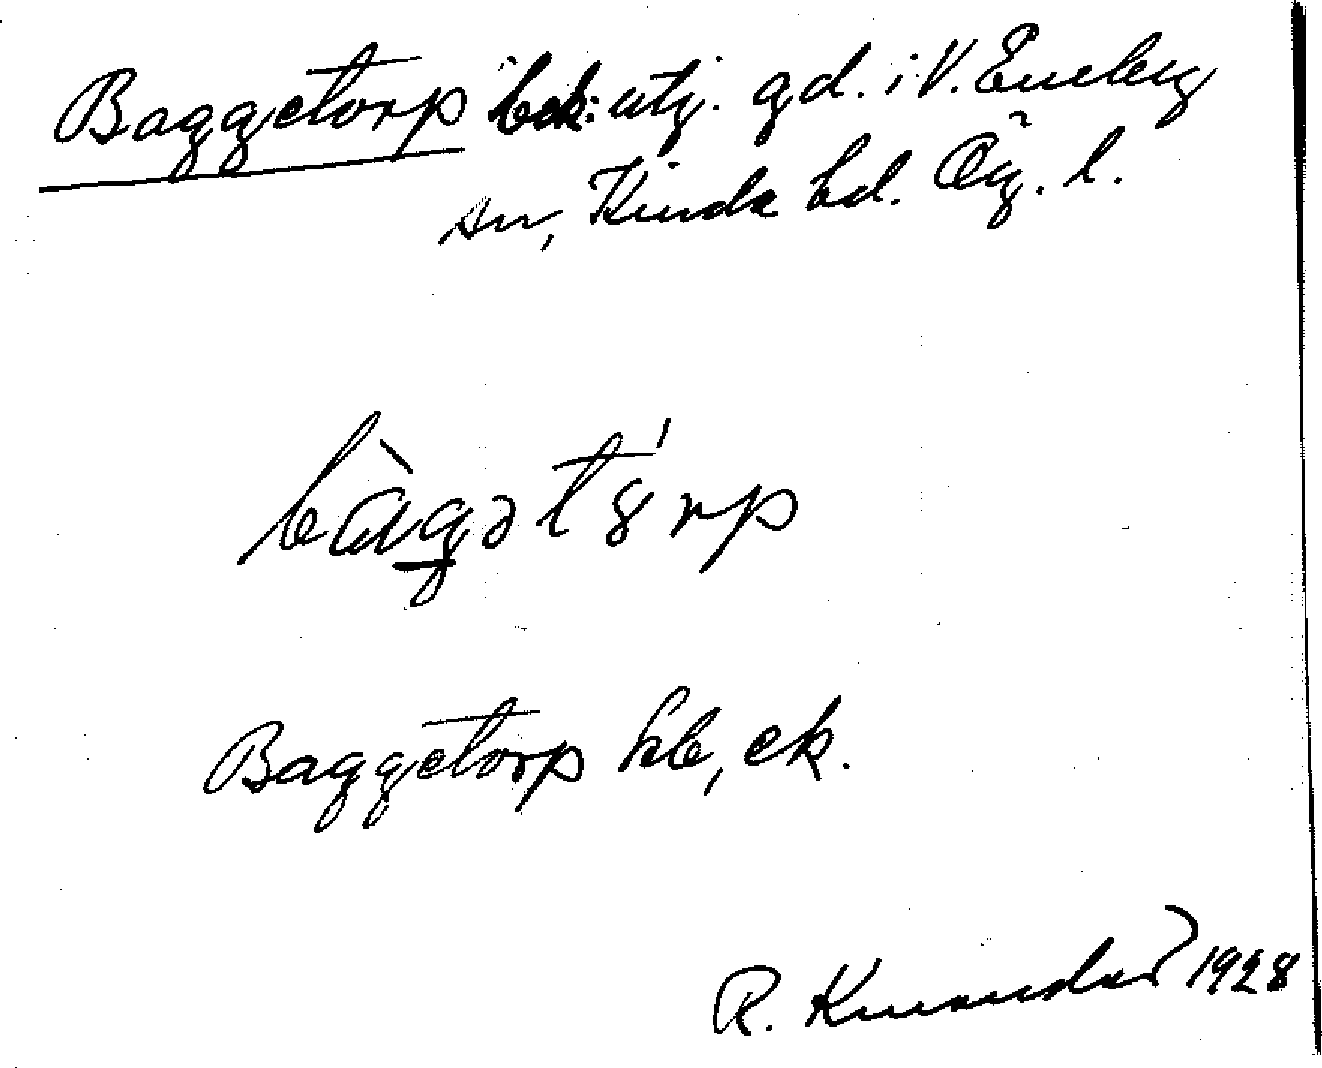 Baggetorp bek: utj. gd. i V. Eneby
sn, Kinda hd. Ög. l.
bàgətȣ́rp
Baggetorp hb, ek.
R. 1928